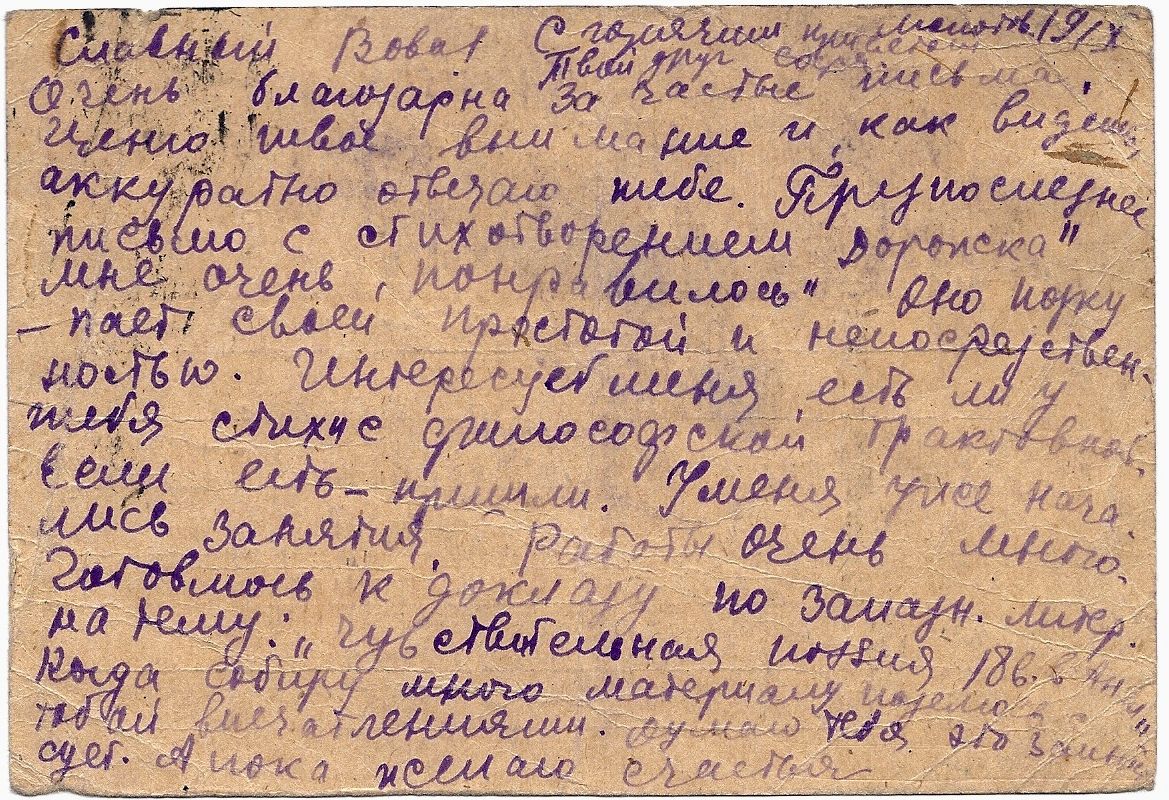 Славный Вова! С горячим приветом 19/IX
Твой друг
Очень благодарна за частые письма.
Ценю твое внимание и, как видишь,
аккуратно отвечаю тебе. Предпоследнее
письмо с стихотворением „Дорожка"
мне очень „понравилось" Оно подку
– пает своей простотой и непосредствен-
ностью. Интересует меня, есть ли у
тебя стихи с философской трактовкой.
если есть – пришли. У меня уже нача
лись занятия, работы очень много.
Готовлюсь к докладу по западн. литер.
на тему: „Чувствительная поэзия 18 в. в Англ."
Когда соберу много материалу поделюсь с
тобой впечатлениями. думаю тебя это заинтере
сует. А пока желаю счастья